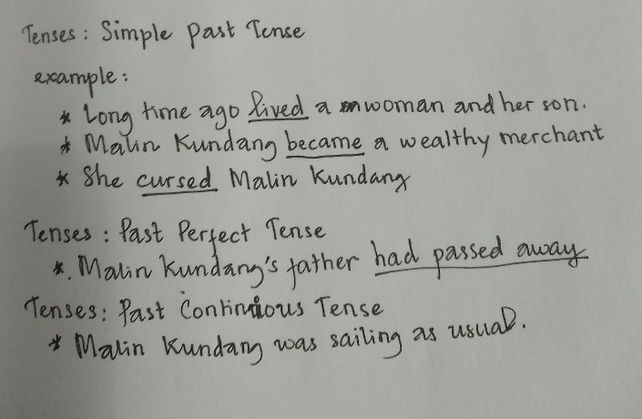 Tenses : Simple Past Tense
example :
* Long time ago lived a woman and her son.
* Malin Kundang became a wealthy merchant
* She cursed Malin Kundang
Tenses : Past Perfect Tense
*. Malin Kundang's father had passed away
Tenses : Past Continuous Tense
* Malin Kundang was sailing as usual.